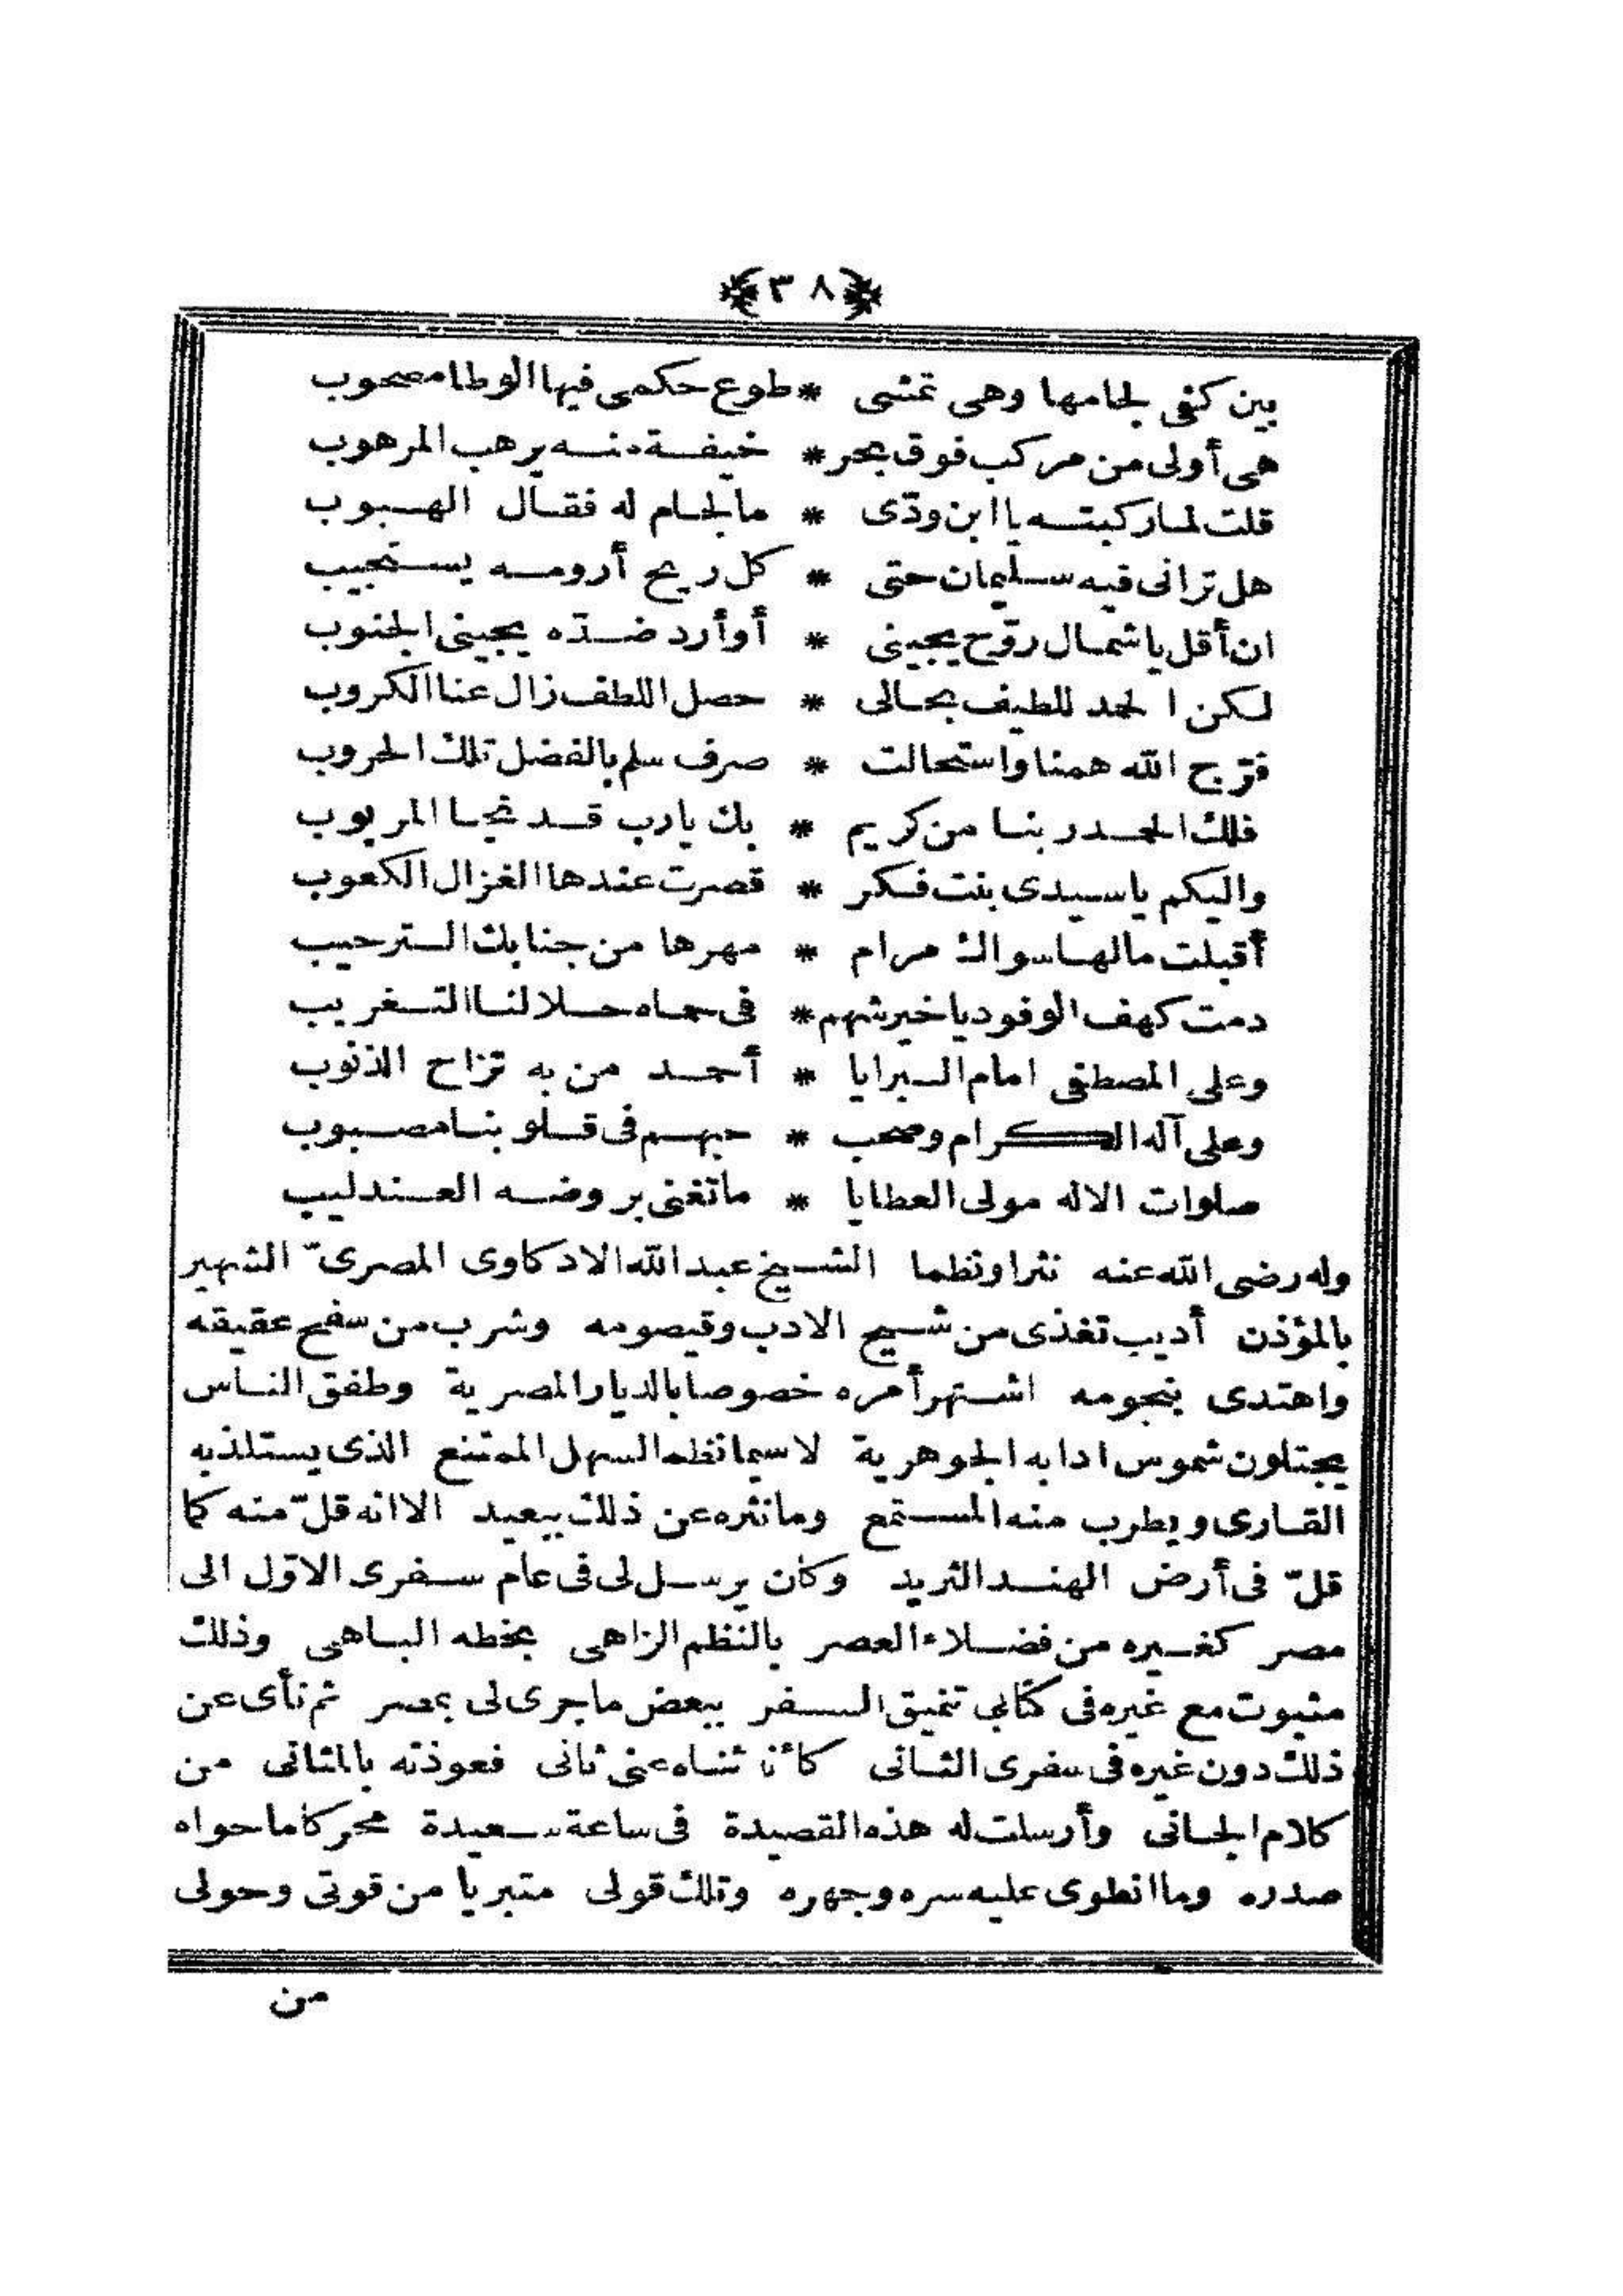 ﴿٣٨﴾
بين كفى لجامها وهى تمشى * طوع حكمى فيها الوطا مصحوب
هى أولى من مركب فوق بحر * خيفة منه يرهب المرهوب
قلت لما ركبته يا ابن ودّى * ما لجام له فقال الهبوب
هل ترانى فيه سليمان حتى * كل ريح أرومه يستجيب
ان أقل يا شمال روّح يجينى * أو أرد ضدّه يجينى الجنوب
لكن الحمد للطيف بحالى * حصل اللطف زال عنا الكروب
فرّج الله همنا واستحالت * صرف سلم بالفضل تلك الحروب
فلك الحمد ربنا من كريم * بك يارب قد نجا المربوب
واليكم ياسيدى بنت فكر * قصرت عندها الغزال الكعوب
أقبلت مالها سواك مرام * مهرها من جنابك الترحيب
دمت كهف الوفود يا خير شهم * فى حماه حلا لنا التغريب
وعلى المصطفى امام البرايا * أحمد من به تزاح الذنوب
وعلى آله الكرام وصحب * حبهم فى قلوبنا مصبوب
صلوات الاله مولى العطايا * ما تغنى بروضه العندليب
وله رضى الله عنه نثرا ونظما الشيخ عبد الله الادكاوى المصرىّ الشهير
بالمؤذن أديب تغذى من شيح الادب وقيصومه وشرب من سفح عقيقه
واهتدى بنجومه اشتهر أمره خصوصا بالديار المصرية وطفق الناس
يجتلون شموس ادابه الجوهرية لاسيما نظمه السهل الممتنع الذى يستلذ به
القارى ويطرب منه المستمع وما نثره عن ذلك ببعيد الا انه قلّ منه كما
قلّ فى أرض الهند الثريد وكان يرسل لى فى عام سفرى الاوّل الى
مصر كغيره من فضلاء العصر بالنظم الزاهى بخطه الباهى وذلك
مثبوت مع غيره فى كتابى تنميق السفر ببعض ما جرى لى بمصر ثم نأى عن
ذلك دون غيره فى سفرى الثانى كأنا ثناه عنى ثانى فعوذته بالمثانى من
كلام الجانى وأرسلت له هذه القصيدة فى ساعة سعيدة محركا ما حواه
صدره وما انطوى عليه سره وجهره وتلك قولى متبريا من قوتى وحولى
من